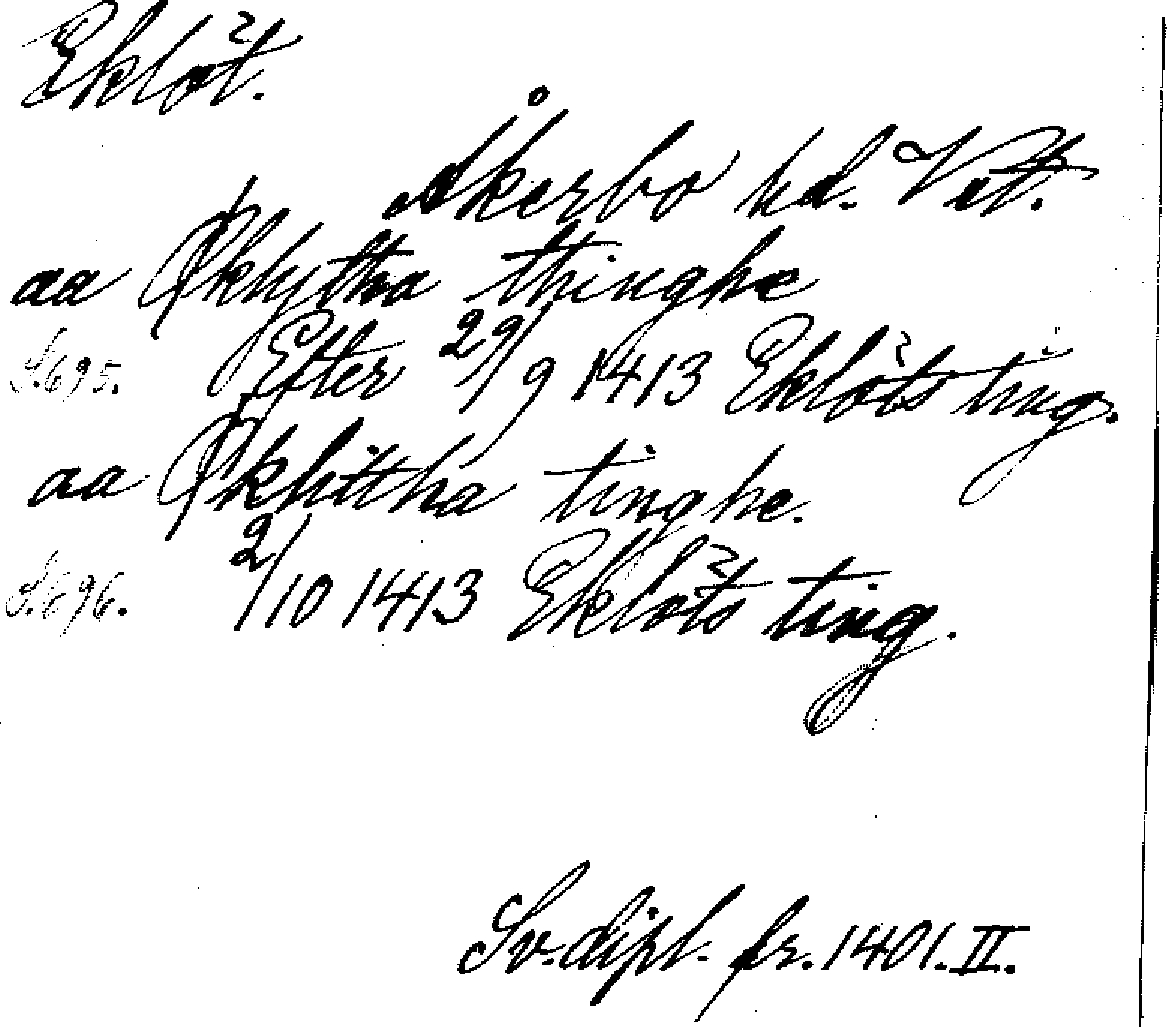 Eklöt.
Åkerbo hd. Vstt.
aa Øklytha thinghe
S. 695. Efter 29/9 1413 Eklöts ting.
aa Øklittha tinghe.
S. 696. 2/10 1413 Eklöts ting.
Sv. dipl. fr. 1401. II.